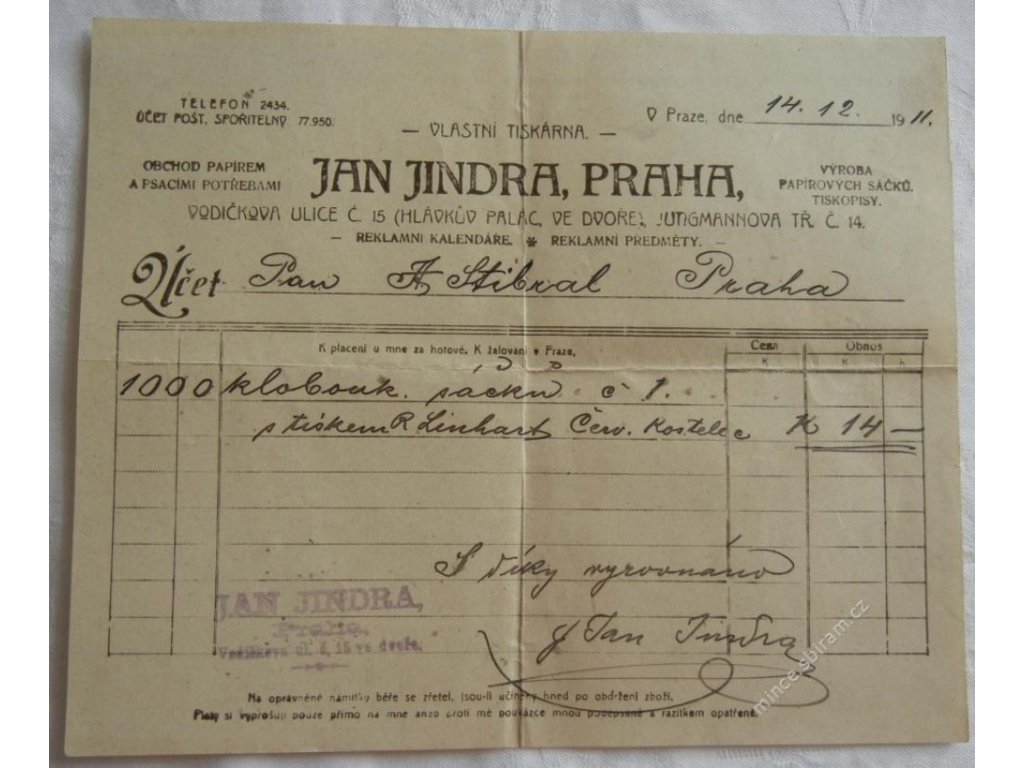 TELEFON 2434.
ÚČET POŠT. SPOŘITELNY 77.950.
V Praze, dne 14. 12. 1911.
— VLASTNÍ TISKÁRNA. —
OBCHOD PAPÍREM
A PSACÍMI POTŘEBAMI
JAN JINDRA, PRAHA,
VÝROBA
PAPÍROVÝCH SÁČKŮ.
TISKOPISY.
VODIČKOVA ULICE Č. 15 (HLÁVKŮV PALÁC, VE DVOŘE), JUNGMANNOVA TŘ. Č. 14.
— REKLAMNÍ KALENDÁŘE. ✱ REKLAMNÍ PŘEDMĚTY. —
Účet Pan A Stibral Praha
K placení u mne za hotové. K žalování v Praze.
Cena
Obnos
K
K
h
1000 klobouk. sáčků č 1.
s tiskem R Linhart Červ. Kostelec K 14 —
S díky vyrovnáno
Jan Jindra
JAN JINDRA,
Praha,
Vodičkova ul. č. 15 ve dvoře.
Na oprávněné námitky běře se zřetel, jsou-li učiněny hned po obdržení zboží.
Platy si vyprošuji pouze přímo na mne anebo proti mé poukázce mnou podepsané a razítkem opatřené.
mince.sbiram.cz